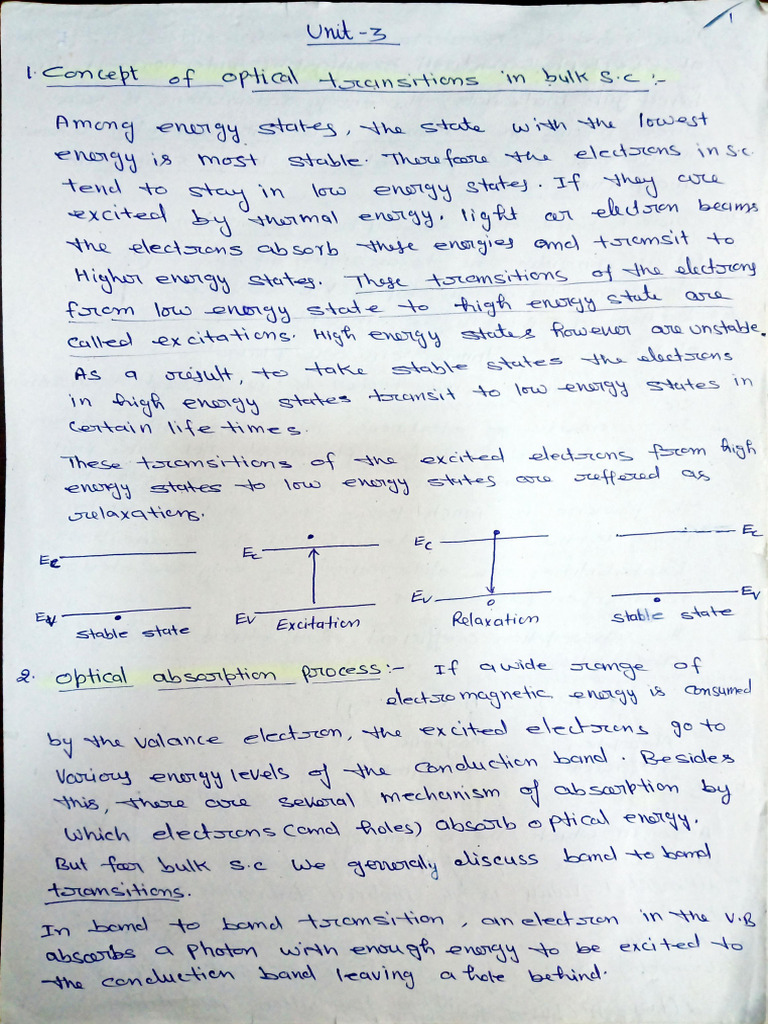 1
Unit-3
1. Concept of optical transitions in bulk s.c :-
Among energy states, the state with the lowest
energy is most stable. Therefore the electrons in s.c.
tend to stay in low energy states. If they are
excited by thermal energy, light or electron beams
the electrons absorb these energies and transit to
Higher energy states. These transitions of the electrons
from low energy state to high energy state are
called excitations. High energy states however are unstable.
As a result, to take stable states the electrons
in high energy states transit to low energy states in
certain life times.
These transitions of the excited electrons from high
energy states to low energy states are reffered as
relaxations.
Ec Ec Ec Ec
Ev Ev Ev Ev
stable state Excitation Relaxation stable state
2. optical absorption process:- If a wide range of
electromagnetic energy is consumed
by the valance electron, the excited electrons go to
various energy levels of the conduction band. Besides
this, there are several mechanism of absorption by
which electrons (and holes) absorb optical energy.
But for bulk s.c we generally discuss band to band
transitions.
In band to band transition, an electron in the V.B
absorbs a photon with enough energy to be excited to
the conduction band leaving a hole behind.